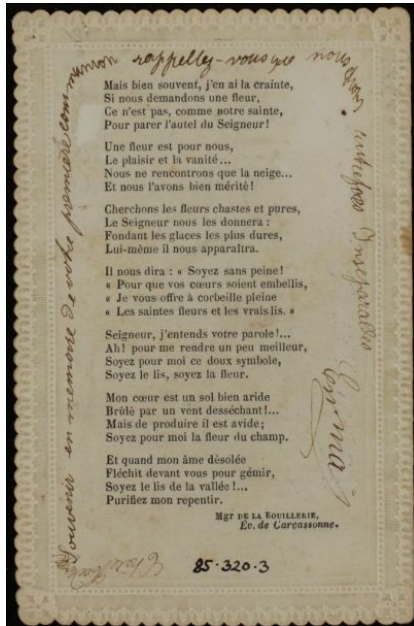 Souvenir en memoire de votre premiere communion rappellez-vous que nous
autrefois Inseparables
Emma
Mais bien souvent, j'en ai la crainte,
Si nous demandons une fleur,
Ce n'est pas, comme notre sainte,
Pour parer l'autel du Seigneur!
Une fleur est pour nous,
Le plaisir et la vanité...
Nous ne rencontrons que la neige...
Et nous l'avons bien mérité!
Cherchons les fleurs chastes et pures,
Le Seigneur nous les donnera :
Fondant les glaces les plus dures,
Lui-même il nous apparaîtra.
Il nous dira : « Soyez sans peine!
« Pour que vos cœurs soient embellis,
« Je vous offre à corbeille pleine
« Les saintes fleurs et les vrais lis. »
Seigneur, j'entends votre parole!...
Ah! pour me rendre un peu meilleur,
Soyez pour moi ce doux symbole,
Soyez le lis, soyez la fleur.
Mon cœur est un sol bien aride
Brûlé par un vent desséchant!...
Mais de produire il est avide;
Soyez pour moi la fleur du champ.
Et quand mon âme désolée
Fléchit devant vous pour gémir,
Soyez le lis de la vallée!...
Purifiez mon repentir.
Mgr DE LA BOUILLERIE,
Év. de Carcassonne.
85.320.3